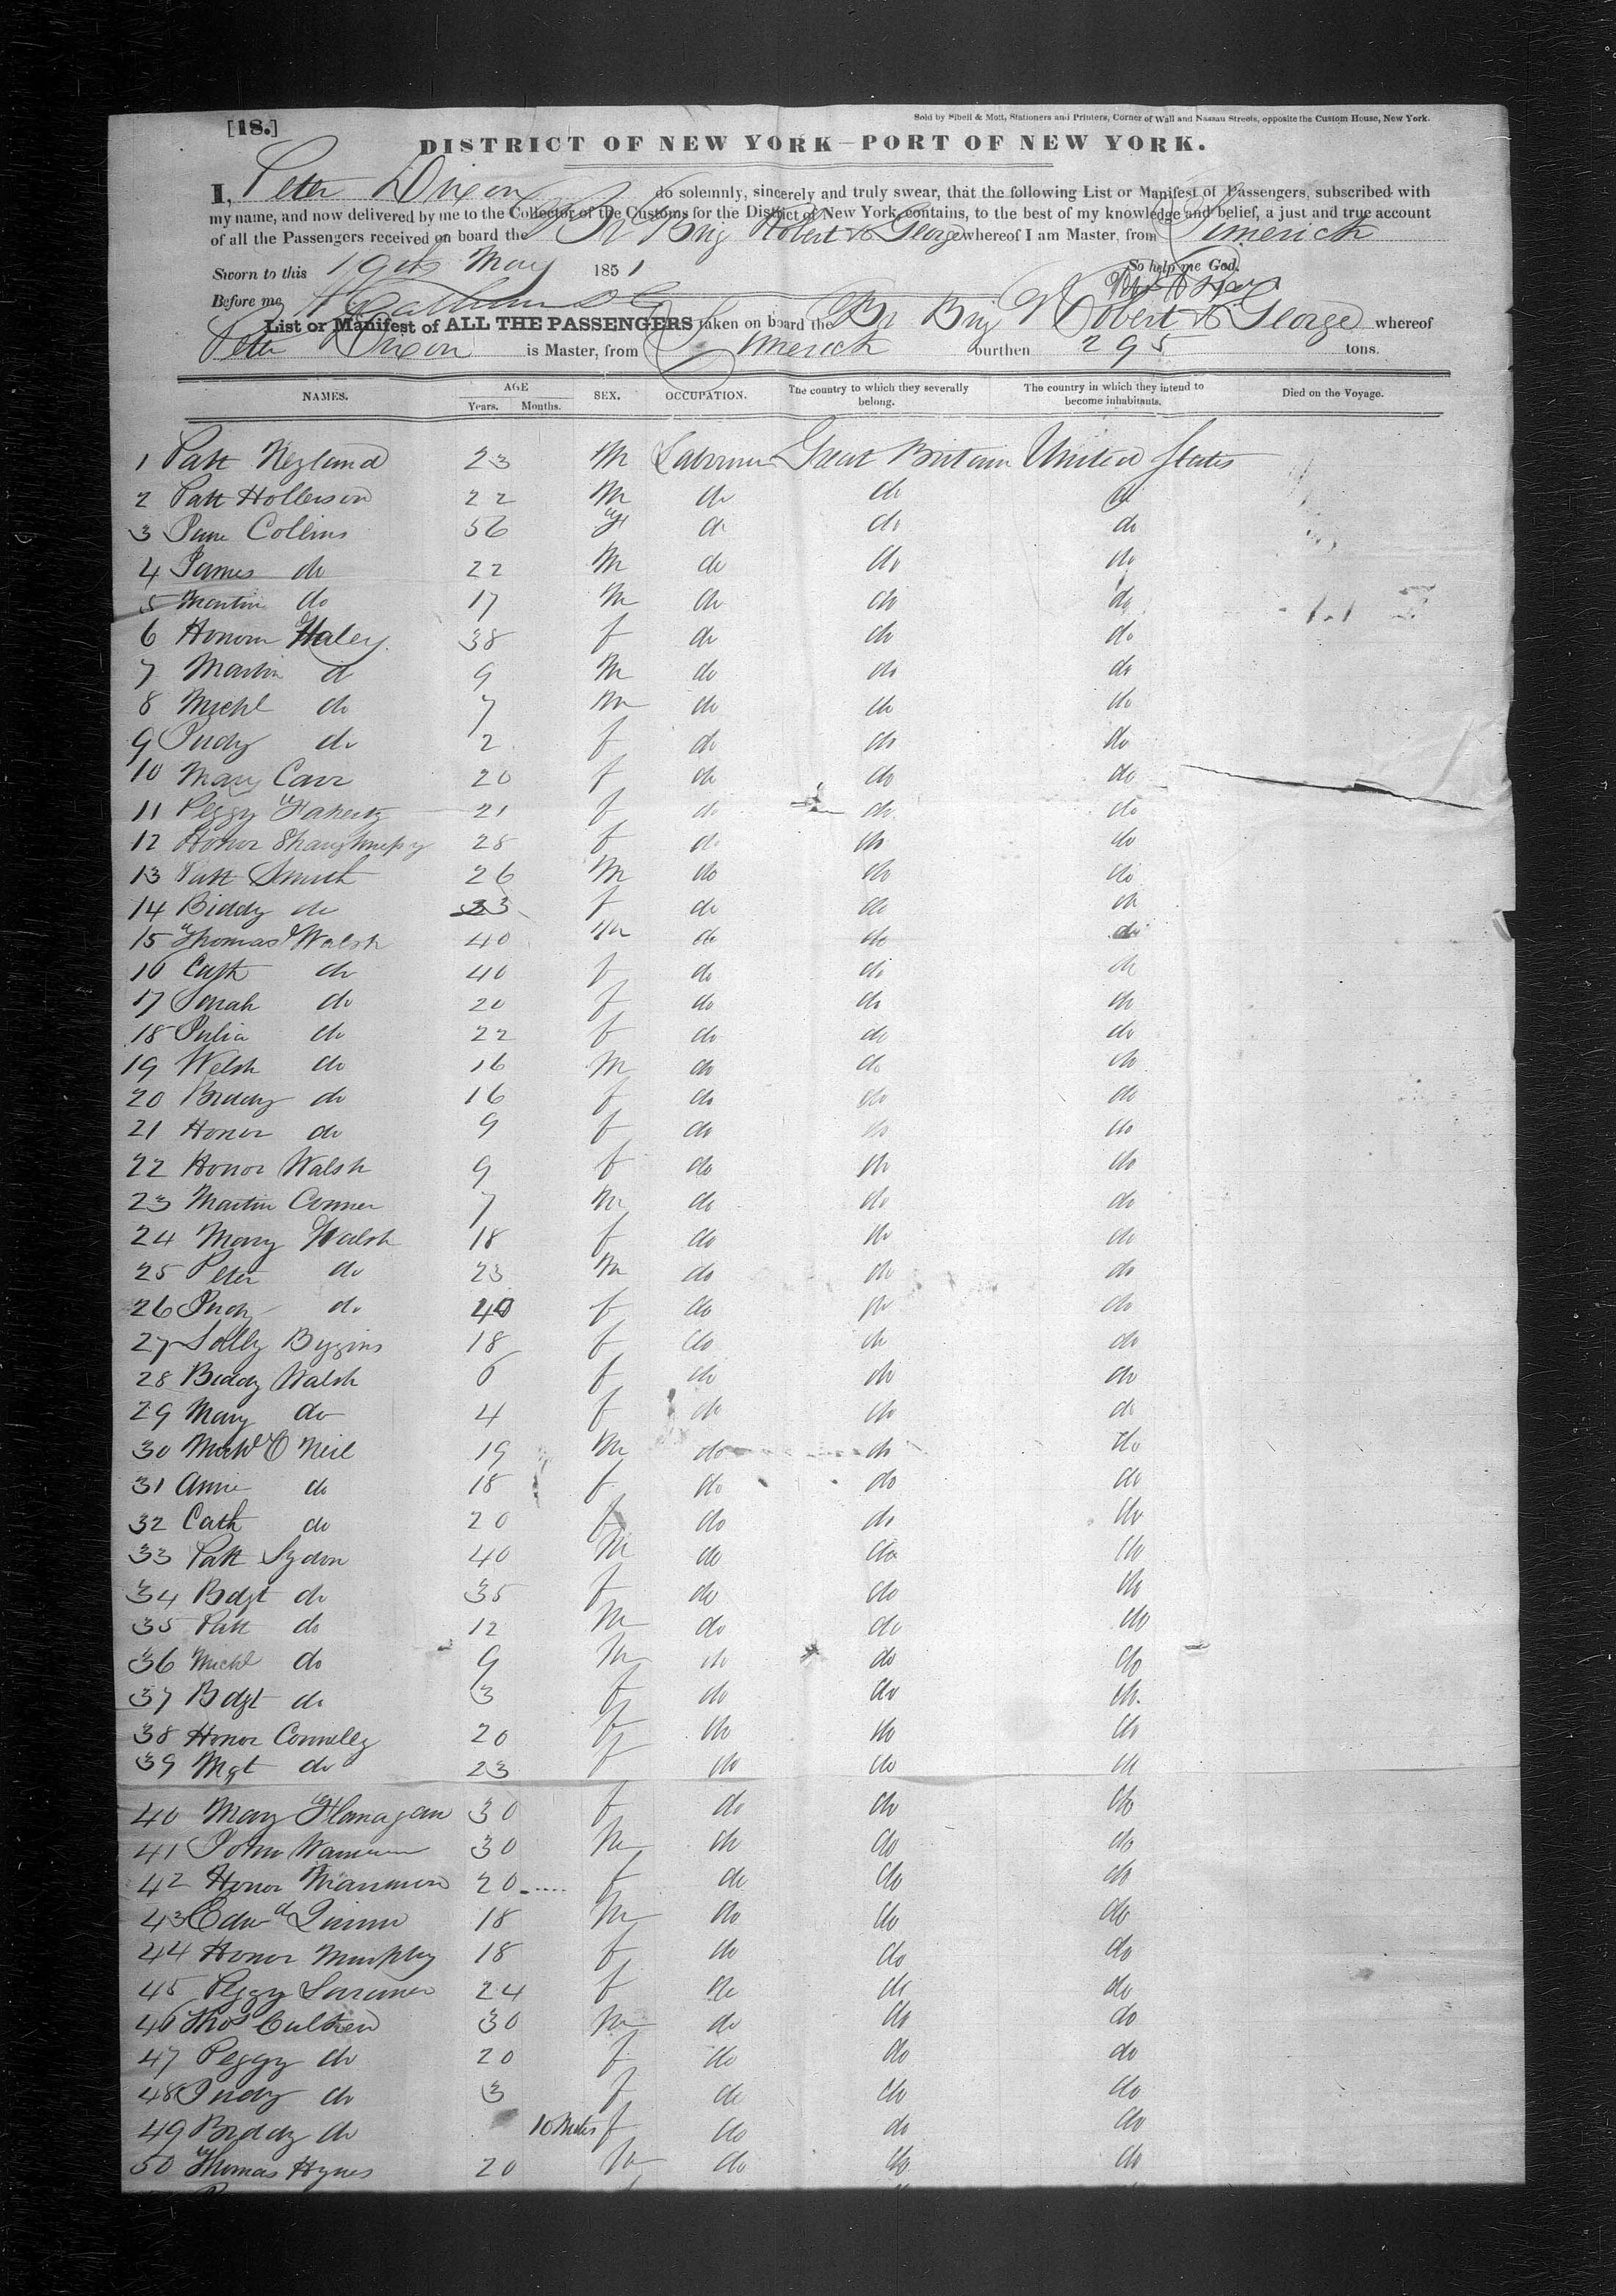 [18.]
Sold by Sibell & Mott, Stationers and Printers, Corner of Wall and Nassau Streets, opposite the Custom House, New York.
DISTRICT OF NEW YORK—PORT OF NEW YORK.
I, Peter Dixon do solemnly, sincerely and truly swear, that the following List or Manifest of Passengers, subscribed with
my name, and now delivered by me to the Collector of the Customs for the District of New York, contains, to the best of my knowledge and belief, a just and true account
of all the Passengers received on board the Br Brig Robert & George whereof I am Master, from Limerick
Sworn to this 19th May 1851 So help me God.
Before me,
List or Manifest of ALL THE PASSENGERS taken on board the Br Brig Robert & George whereof
Peter Dixon is Master, from Limerick burthen 295 tons.
NAMES. AGE Years. Months. SEX. OCCUPATION. The country to which they severally belong. The country in which they intend to become inhabitants. Died on the Voyage.
1 Patt 23 M Labourer Great Britain United States
2 Patt Hollerson 22 M do do do
3 Collins 36 f do do do
4 James do 22 M do do do
5 Martin do 17 M do do do
6 Honora Haley 38 f do do do
7 Martin do 9 M do do do
8 Michl do 7 M do do do
9 Judy do 2 f do do do
10 Mary Carr 20 f do do do
11 Peggy Faherty 21 f do do do
12 Honor Shaughnessy 28 f do do do
13 Patt Smith 26 M do do do
14 Biddy do 23 f do do do
15 Thomas Walsh 40 M do do do
16 Cath do 40 f do do do
17 do 20 f do do do
18 Julia do 22 f do do do
19 Welsh do 16 M do do do
20 Biddy do 16 f do do do
21 Honor do 9 f do do do
22 Honor Walsh 9 f do do do
23 Martin Conner 7 M do do do
24 Mary Walsh 18 f do do do
25 Peter do 23 M do do do
26 Judy do 40 f do do do
27 Sally Byggins 18 f do do do
28 Biddy Walsh 6 f do do do
29 Mary do 4 f do do do
30 Michl O Neil 19 M do do do
31 Anne do 18 f do do do
32 Cath do 20 f do do do
33 Patt Lydon 40 M do do do
34 Bdgt do 35 f do do do
35 Patt do 12 M do do do
36 Michl do 9 M do do do
37 Bdgt do 3 f do do do
38 Honor Connelly 20 f do do do
39 Mgt do 23 f do do do
40 Mary Flanagan 30 f do do do
41 John 30 M do do do
42 Honor 20 f do do do
43 Edwd Quinn 18 M do do do
44 Honor Murphy 18 f do do do
45 Peggy 24 f do do do
46 Thos Culkeen 30 M do do do
47 Peggy do 20 f do do do
48 Judy do 3 f do do do
49 Biddy do 10 Mths f do do do
50 Thomas Hynes 20 M do do do